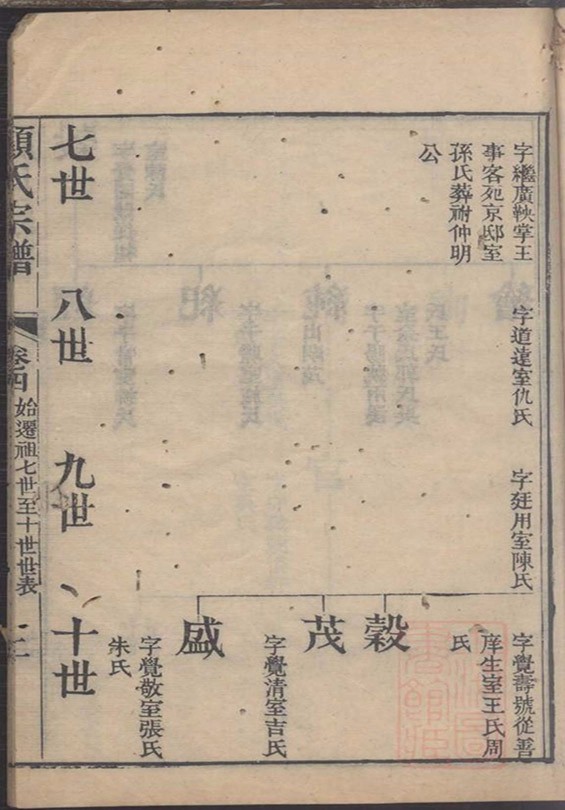 字繼廣鞅掌王
事客死京邸室
孫氏葬祔仲明
公
字道遠室仇氏
字廷用室陳氏
字覺壽號從善
庠生室王氏周
氏
穀
茂
字覺清室吉氏
盛
字覺敬室張氏
朱氏
七世
八世
九世
十世
顧氏宗譜
卷四
始遷祖七世至十世世表